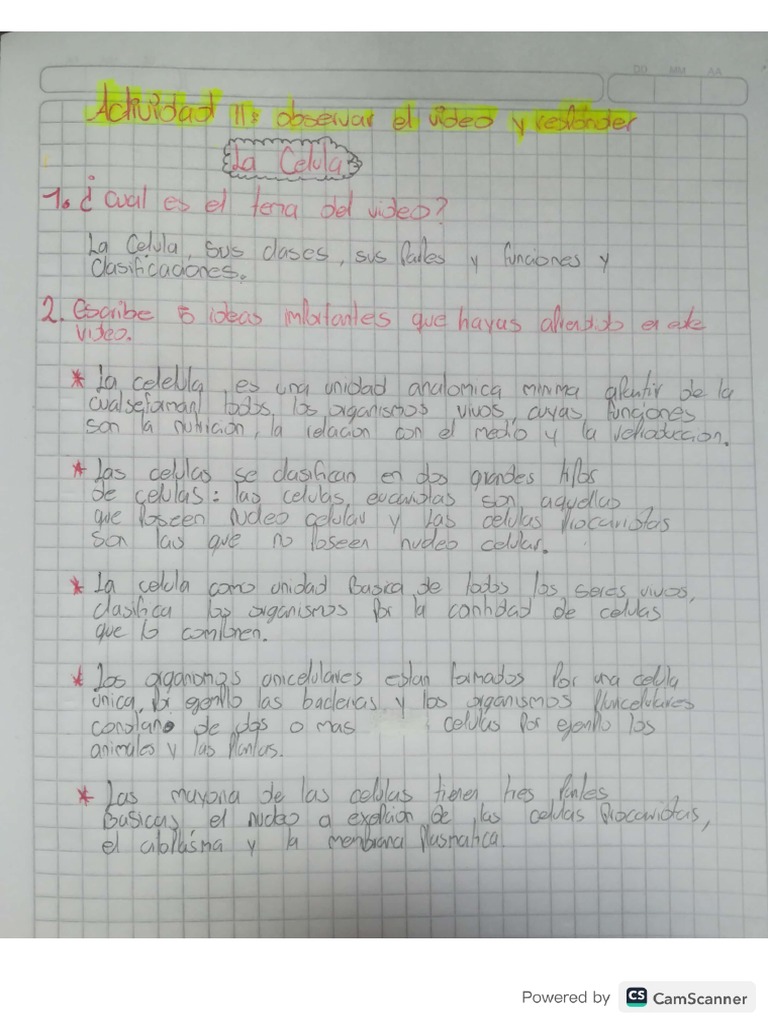 DD MM AA
Actividad 11: observar el video y responder
La Celula
1. ¿Cual es el tema del video?
La Celula, sus clases, sus Partes y funciones y
Clasificaciones.
2. Escribe 5 ideas importantes que hayas aprendido en este
video.
* La celelula, es una unidad anatomica minima apartir de la
cual se forman todos los organismos vivos, cuyas funciones
son la nutricion, la relacion con el medio y la reproduccion.
* Las celulas se clasifican en dos grandes tipos
de celulas: las celulas eucariotas son aquellas
que poseen nucleo celular y las celulas Procariotas
son las que no poseen nucleo celular.
* La celula como unidad Basica de todos los seres vivos,
clasifica los organismos Por la cantidad de celulas
que lo componen.
* Los organismos unicelulares estan formados Por una celula
única, Por ejemplo las bacterias y los organismos Pluricelulares
constan de dos o mas celulas Por ejemplo los
animales y las Plantas.
* Las mayoria de las celulas tienen tres Partes
Basicas, el nucleo a exepcion de las celulas Procariotas,
el citoplasma y la membrana Plasmatica.
Powered by CS CamScanner